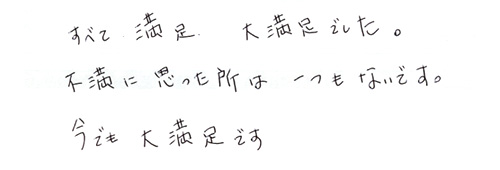 すべて 満足 大満足でした。
不満に思った所は一つもないです。
今でも大満足です